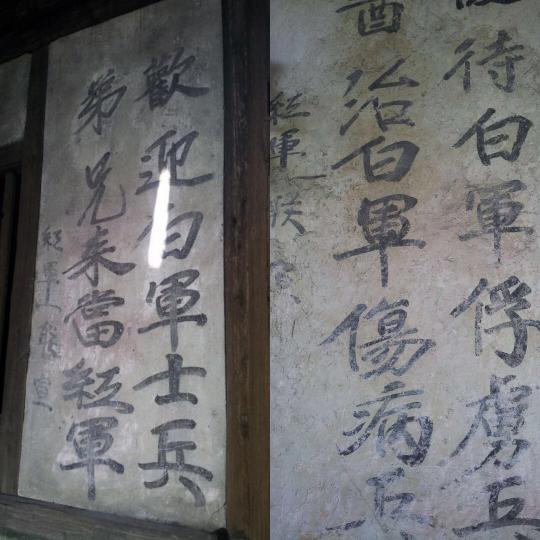 歡迎白軍士兵
弟兄来當紅軍
紅軍 宣
待白軍俘虜兵
治白軍傷病兵
紅軍一